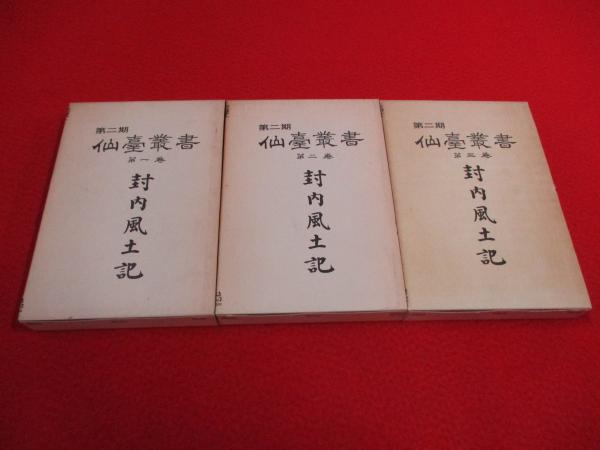 第二期
仙臺叢書
第一卷
封内風土記
第二期
仙臺叢書
第二卷
封内風土記
第二期
仙臺叢書
第三卷
封内風土記